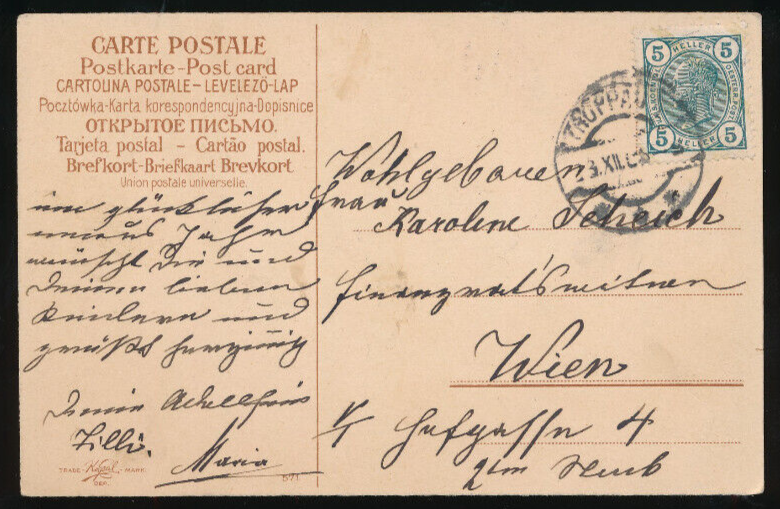 CARTE POSTALE
Postkarte-Post card
CARTOLINA POSTALE-LEVELEZŐ-LAP
Pocztówka-Karta korespondencyjna-Dopisnice
ОТКРЫТОЕ ПИСЬМО.
Tarjeta postal - Cartão postal.
Brefkort-Briefkaart Brevkort
Union postale universelle.
ein glückliches
neues Jahr
wünscht Dir und
Deinen lieben
Kindern und
grüßt herzinnig
Deine
Zilli.
Maria
TRADE MARK
571
5 HELLER 5
5 HELLER 5
TROPPAU
XII
Wohlgeboren
Frau
Karoline
Finanzratswitwe
Wien
Hofgasse 4